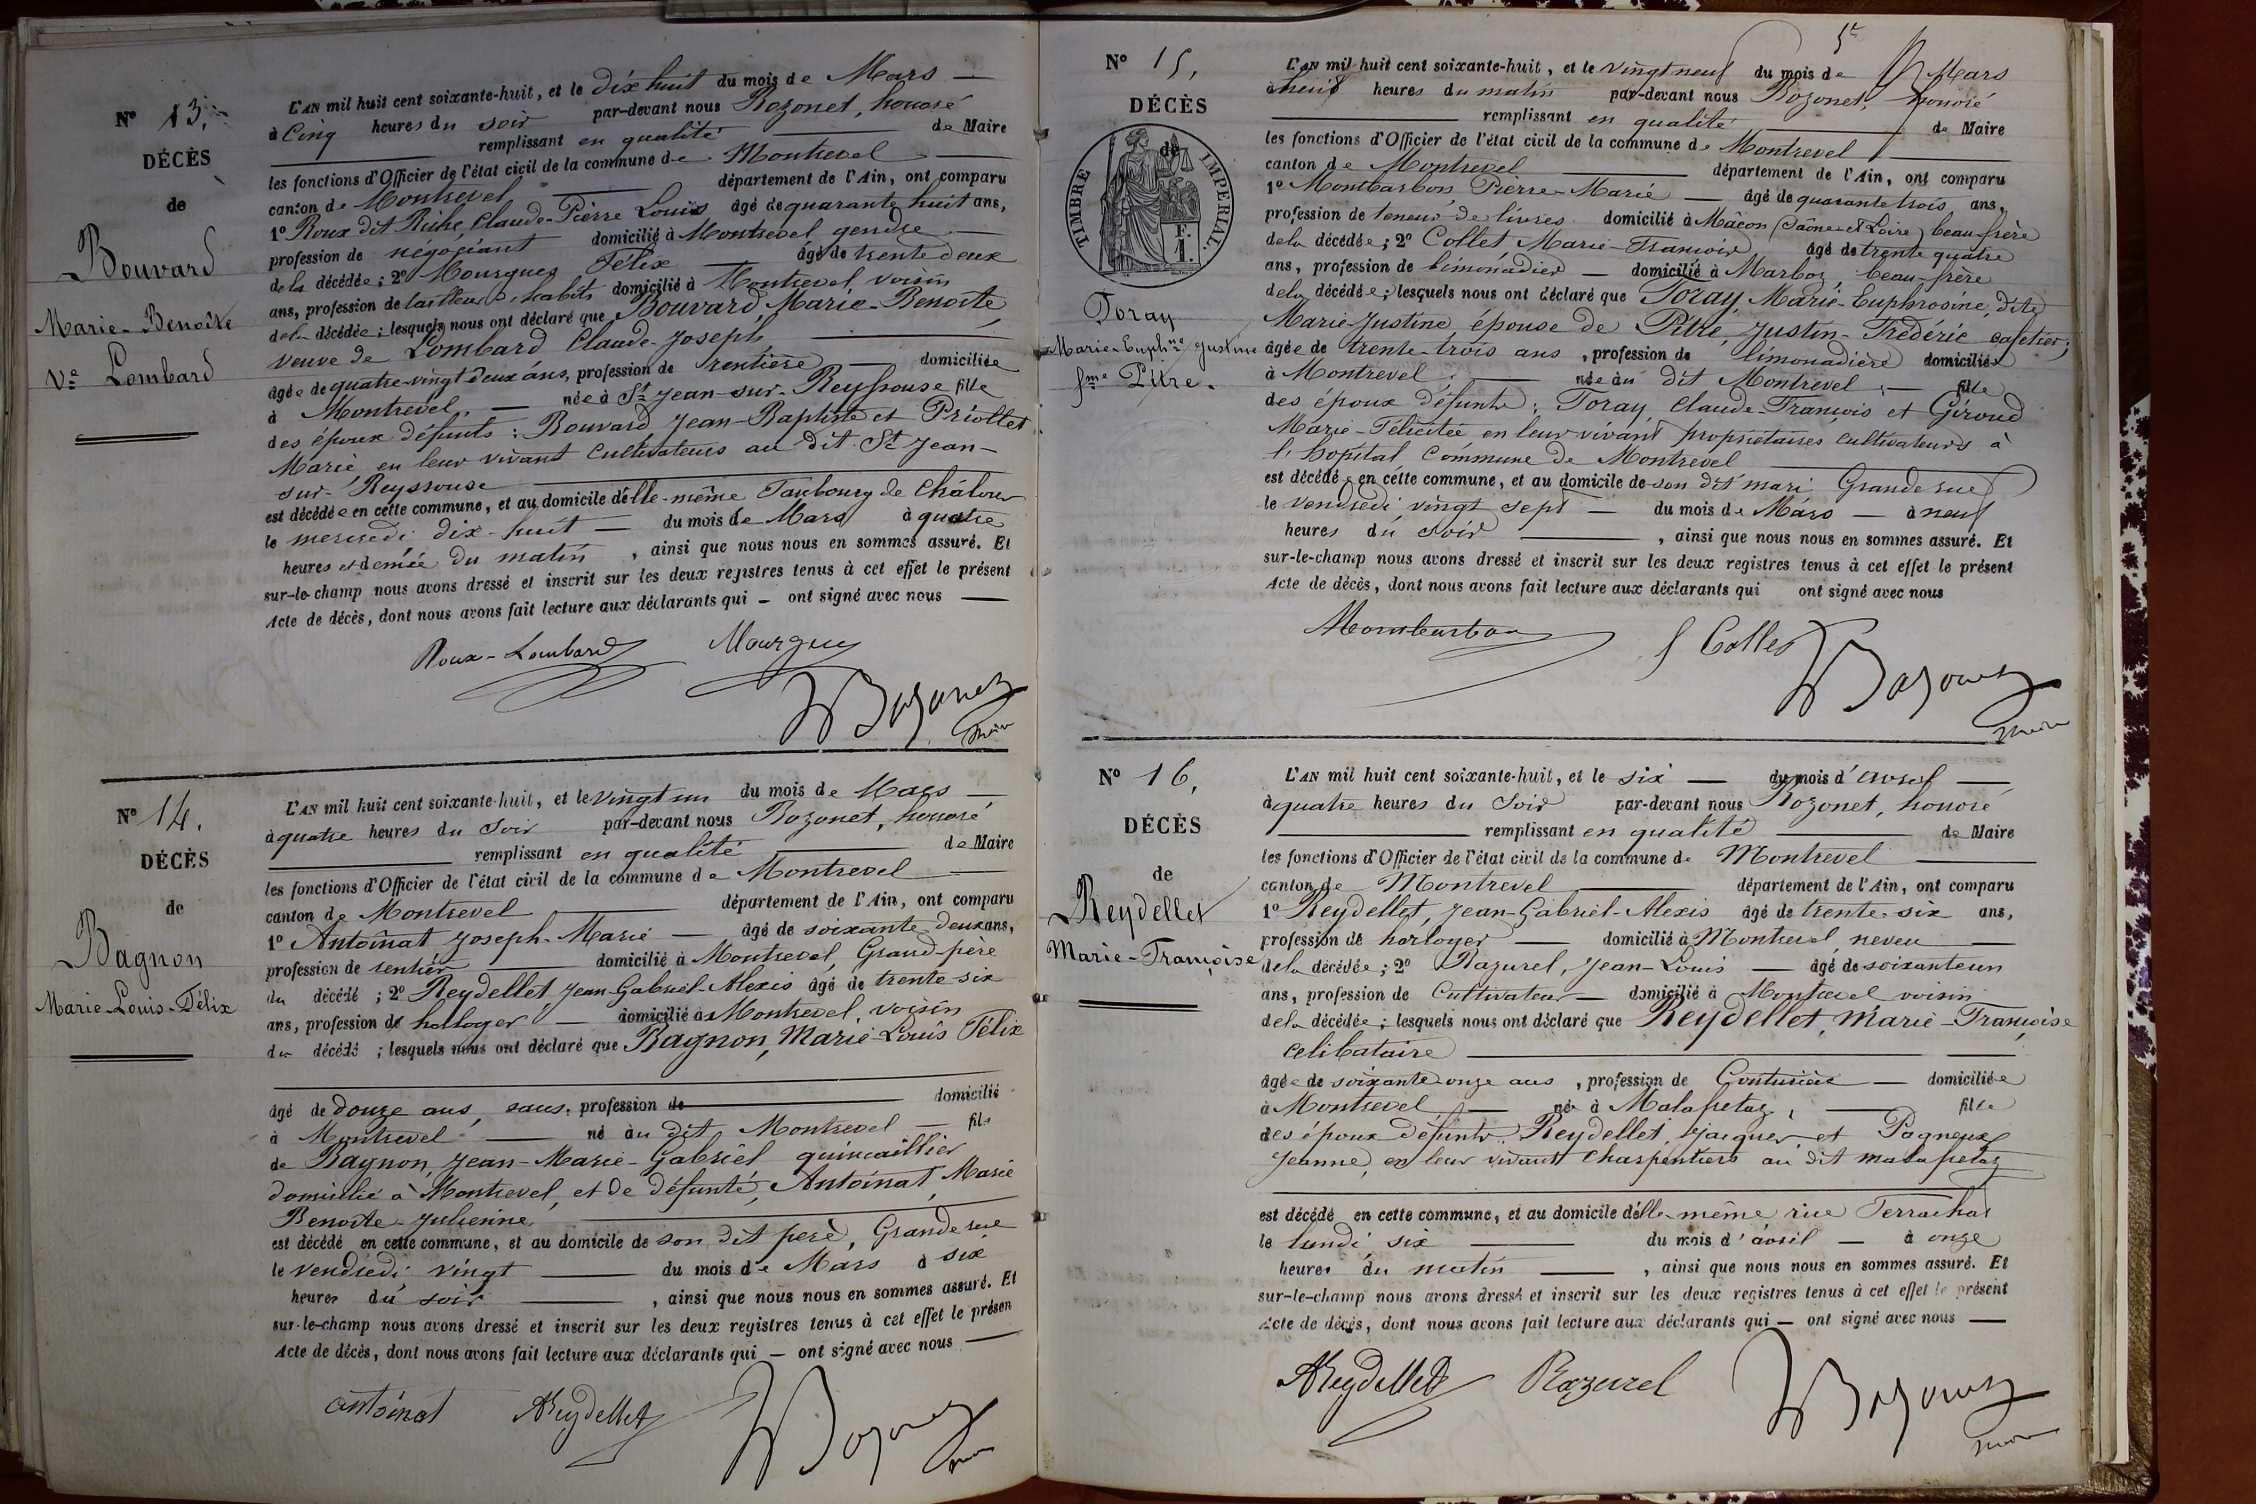 N° 13.
DÉCÈS
de
Bouvard
Marie-Benoîte
Ve Lombard
L'AN mil huit cent soixante-huit, et le dix huit du mois de Mars
à Cinq heures du soir par-devant nous Bozonet, honoré
remplissant en qualité de Maire
les fonctions d'Officier de l'état civil de la commune de Montrevel
canton de Montrevel département de l'Ain, ont comparu
1° Roux dit Riche, Claude-Pierre Louis âgé de quarante huit ans,
profession de négociant domicilié à Montrevel gendre
de la décédée; 2° Mourgues Félix âgé de trente deux
ans, profession de tailleur d'habits domicilié à Montrevel, voisin
de la décédée; lesquels nous ont déclaré que Bouvard, Marie-Benoîte
veuve de Lombard Claude-Joseph
âgée de quatre-vingt deux ans, profession de rentière domiciliée
à Montrevel, née à St Jean-sur-Reyssouse fille
des époux défunts: Bouvard Jean-Baptiste et Priollet
Marie en leur vivant Cultivateurs au dit St Jean-
sur-Reyssouse
est décédée en cette commune, et au domicile d'elle-même Faubourg de Châlons
le mercredi dix-huit du mois de Mars à quatre
heures et demie du matin, ainsi que nous nous en sommes assuré. Et
sur-le-champ nous avons dressé et inscrit sur les deux registres tenus à cet effet le présent
Acte de décès, dont nous avons fait lecture aux déclarants qui – ont signé avec nous
Roux-Lombard Mourgues
Bozonet
Maire
N° 14.
DÉCÈS
de
Bagnon
Marie-Louis-Félix
L'AN mil huit cent soixante-huit, et le vingt un du mois de Mars
à quatre heures du soir par-devant nous Bozonet, honoré
remplissant en qualité de Maire
les fonctions d'Officier de l'état civil de la commune de Montrevel
canton de Montrevel département de l'Ain, ont comparu
1° Antoinat Joseph-Marie âgé de soixante deux ans,
profession de rentier domicilié à Montrevel, Grand-père
du décédé; 2° Reydellet Jean-Gabriel-Alexis âgé de trente six
ans, profession de holloger domicilié à Montrevel, voisin
du décédé; lesquels nous ont déclaré que Bagnon, Marie-Louis Félix
âgé de douze ans, sans profession de domicilié
à Montrevel né au dit Montrevel fils
de Bagnon, Jean-Marie-Gabriel quincaillier
domicilié à Montrevel, et de défunte, Antoinat, Marie
Benoîte-Julienne
est décédé en cette commune, et au domicile de son dit père, Grande rue
le vendredi vingt du mois de Mars à six
heures du soir, ainsi que nous nous en sommes assuré. Et
sur-le-champ nous avons dressé et inscrit sur les deux registres tenus à cet effet le présen
Acte de décès, dont nous avons fait lecture aux déclarants qui – ont signé avec nous
antoinat AReydellet Bozonet
Maire
N° 15.
DÉCÈS
de
TIMBRE IMPERIAL.
F.
1.
Toray
Marie-Euphne Justine
fme Pitre.
L'AN mil huit cent soixante-huit, et le vingt neuf du mois de Mars
à neuf heures du matin par-devant nous Bozonet, honoré
remplissant en qualité de Maire
les fonctions d'Officier de l'état civil de la commune de Montrevel
canton de Montrevel département de l'Ain, ont comparu
1° Montbarbon Pierre-Marie âgé de quarante trois ans,
profession de teneur de livres domicilié à Mâcon (Saône-et-Loire) beau-frère
de la décédée; 2° Collet Marie-François âgé de trente quatre
ans, profession de limonadier domicilié à Marboz, beau-frère
de la décédée; lesquels nous ont déclaré que Toray, Marie-Euphrosine, dite
Marie-Justine, épouse de Pitre, Justin-Frédéric cafetier;
âgée de trente-trois ans, profession de limonadière domiciliée
à Montrevel, née au dit Montrevel, fille
des époux défunts: Toray, Claude-François et Giroud
Marie-Félicitée en leur vivant propriétaires cultivateurs à
l'hopital Commune de Montrevel
est décédée en cette commune, et au domicile de son dit mari Grande rue
le vendredi vingt sept du mois de Mars à neuf
heures du soir, ainsi que nous nous en sommes assuré. Et
sur-le-champ nous avons dressé et inscrit sur les deux registres tenus à cet effet le présent
Acte de décès, dont nous avons fait lecture aux déclarants qui ont signé avec nous
Montbarbon f Collet Bozonet
Maire
N° 16.
DÉCÈS
de
Reydellet
Marie-Françoise
L'AN mil huit cent soixante-huit, et le six du mois d'avril
à quatre heures du soir par-devant nous Bozonet, honoré
remplissant en qualité de Maire
les fonctions d'Officier de l'état civil de la commune de Montrevel
canton de Montrevel département de l'Ain, ont comparu
1° Reydellet, Jean-Gabriel-Alexis âgé de trente-six ans,
profession de horloger domicilié à Montrevel, neveu
de la décédée; 2° Razurel, Jean-Louis âgé de soixante un
ans, profession de Cultivateur domicilié à Montrevel voisin
de la décédée; lesquels nous ont déclaré que Reydellet, Marie-Françoise
celibataire
âgée de soixante onze ans, profession de Couturière domiciliée
à Montrevel né à Malafretaz, fille
des époux défunts Reydellet, Jacques et Pagneux
Jeanne, en leur vivant charpentiers au dit malafretaz
est décédé en cette commune, et au domicile d'elle-même rue Terrachat
le lundi six du mois d'avril à onze
heures du matin, ainsi que nous nous en sommes assuré. Et
sur-le-champ nous avons dressé et inscrit sur les deux registres tenus à cet effet le présent
Acte de décès, dont nous avons fait lecture aux déclarants qui – ont signé avec nous
AReydellet Razurel Bozonet
Maire